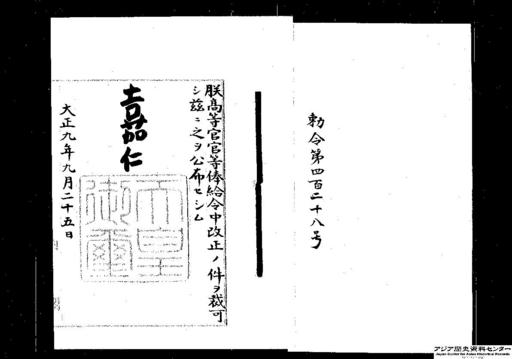 勅令第四百二十八号
朕高等官官等俸給令中改正ノ件ヲ裁可
シ茲ニ之ヲ公布セシム
嘉仁
天皇
御璽
大正九年九月二十五日
アジア歴史資料センター
Japan Center for Asian Historical Records